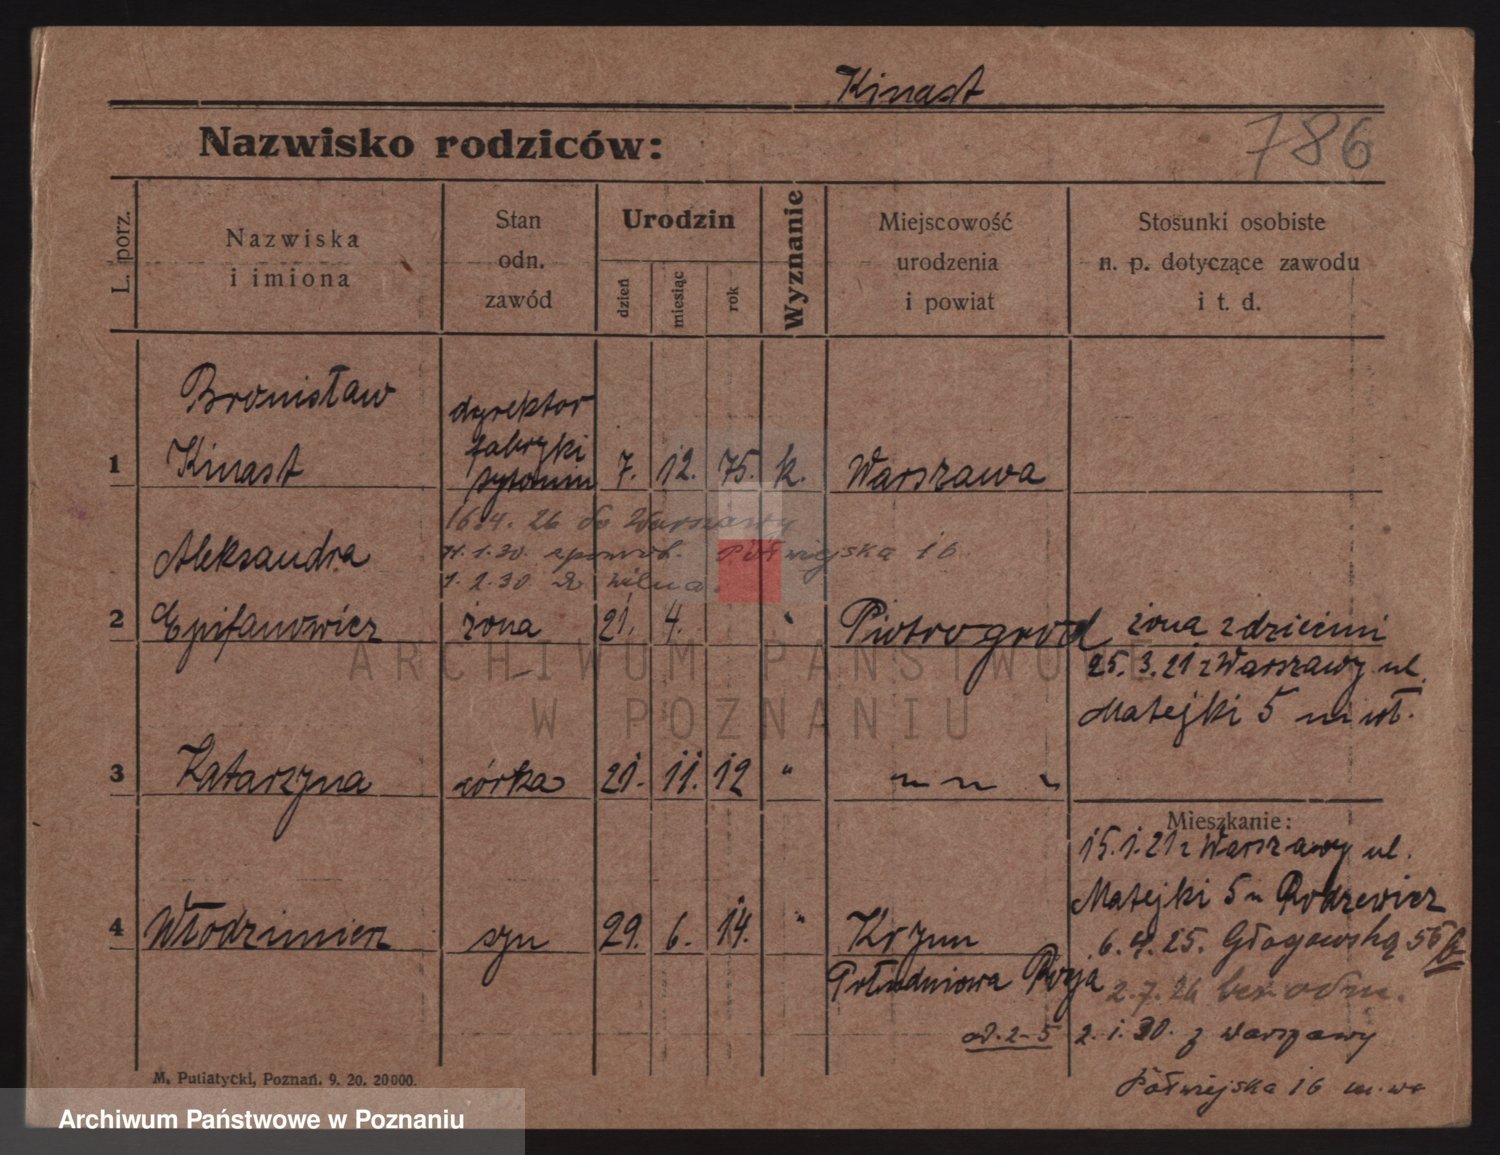 Kinast
Nazwisko rodziców:
786
L. porz.
Nazwiska
i imiona
Stan
odn.
zawód
Urodzin
dzień
miesiąc
rok
Wyznanie
Miejscowość
urodzenia
i powiat
Stosunki osobiste
n. p. dotyczące zawodu
i t. d.
Bronisław
dyrektor
fabryki
1 Kinast 7. 12. 75. k. Warszawa
26 do Warszawy
Aleksandra
Półwiejska 16
1.2.30 Wilna
2 Epifanowicz żona 21. 4. " Piotrogrod żona z dziećmi
25.3.21 z Warszawy ul.
Matejki 5
3 Katarzyna córka 21. 11. 12 " " " "
Mieszkanie:
15.1.21 z Warszawy ul.
Matejki 5 Rodzewicz
4 Włodzimierz syn 29. 6. 14. " Krym
6.4.25. Głogowską 56
Południowa Rosja
2.7.26 bez odm.
od. 2-5 2.1.30. z Warszawy
Półwiejska 16
M. Putiatycki, Poznań. 9. 20. 20000.
ARCHIWUM PAŃSTWOWE
W POZNANIU
Archiwum Państwowe w Poznaniu